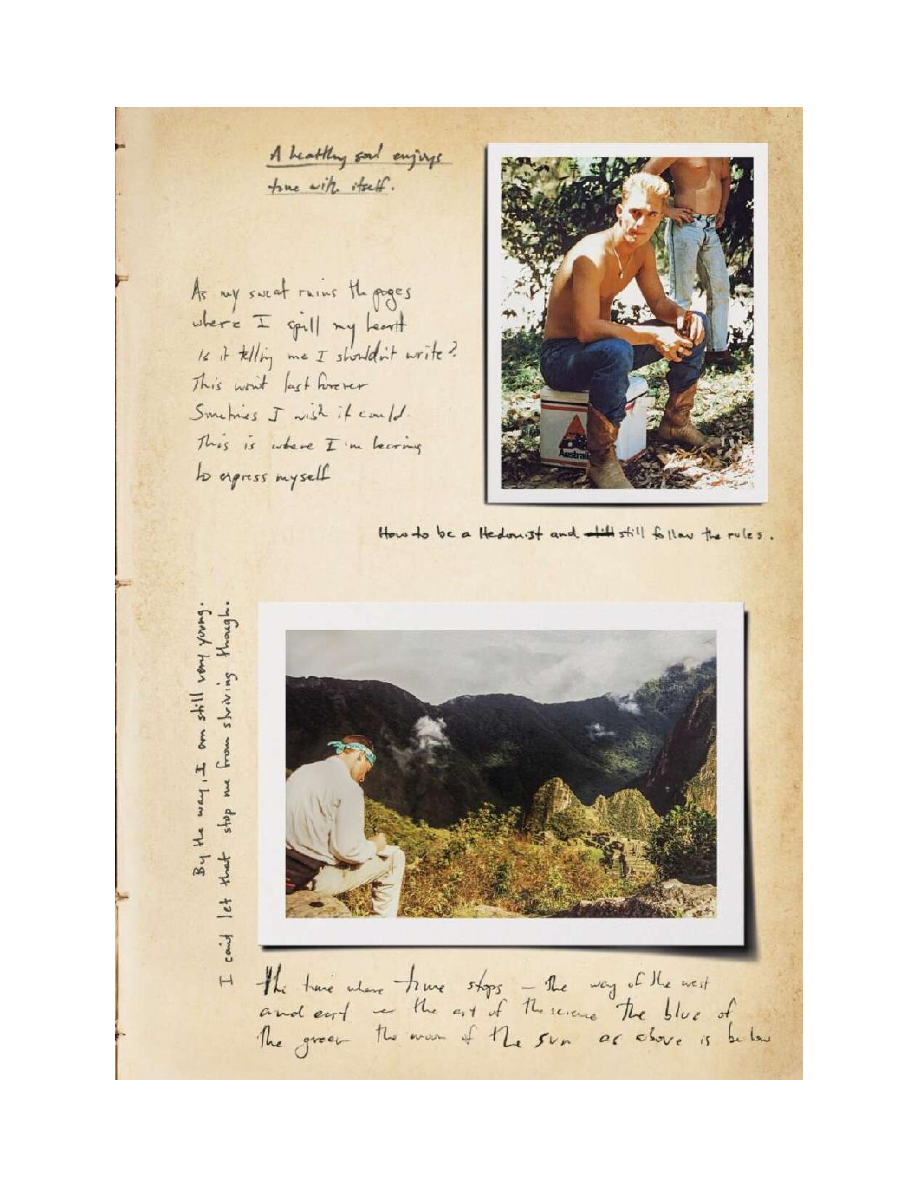 A healthy soul enjoys
time with itself.
As my sweat ruins the pages
where I spill my heart
Is it telling me I shouldn't write?
This won't last forever
Sometimes I wish it could.
This is where I'm learning
to express myself
Austral
How to be a Hedonist and still still follow the rules.
By the way, I am still very young.
I can't let that stop me from striving though.
The time where time stops – the way of the west
and east – the art of the science the blue of
The green the moon of the sun as above is below